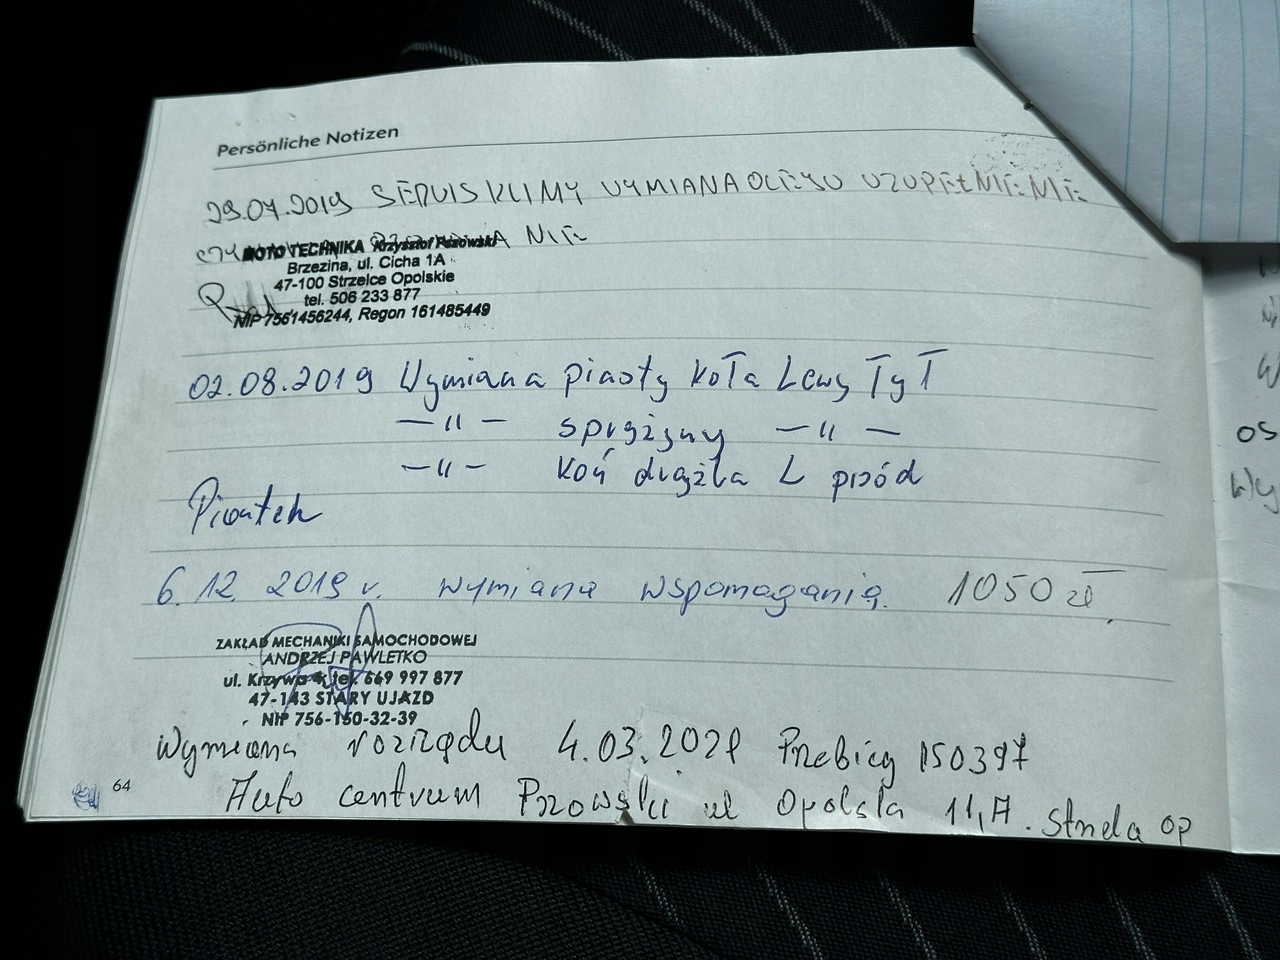 Persönliche Notizen
29.07.2019 SERVIS KLIMY WYMIANA OLEJU UZUPEŁNIENIE
NIE
MOTO TECHNIKA Krzysztof
Brzezina, ul. Cicha 1A
47-100 Strzelce Opolskie
tel. 506 233 877
NIP 7561456244, Regon 161485449
02.08.2019 Wymiana piasty koła Lewy Tył
—〃— sprężyny —〃—
—〃— koń drążka L przód
Piontek
6.12. 2019 r. wymiana wspomagania. 1050 zł
ZAKŁAD MECHANIKI SAMOCHODOWEJ
ANDRZEJ PAWLETKO
ul. Krzywa 4, tel. 669 997 877
47-143 STARY UJAZD
NIP 756-150-32-39
Wymiana rozrządu 4.03.2021 Przebieg 150397
Auto centrum Pzowski ul Opolska 11,A. Strzelce op
64
os
Wy